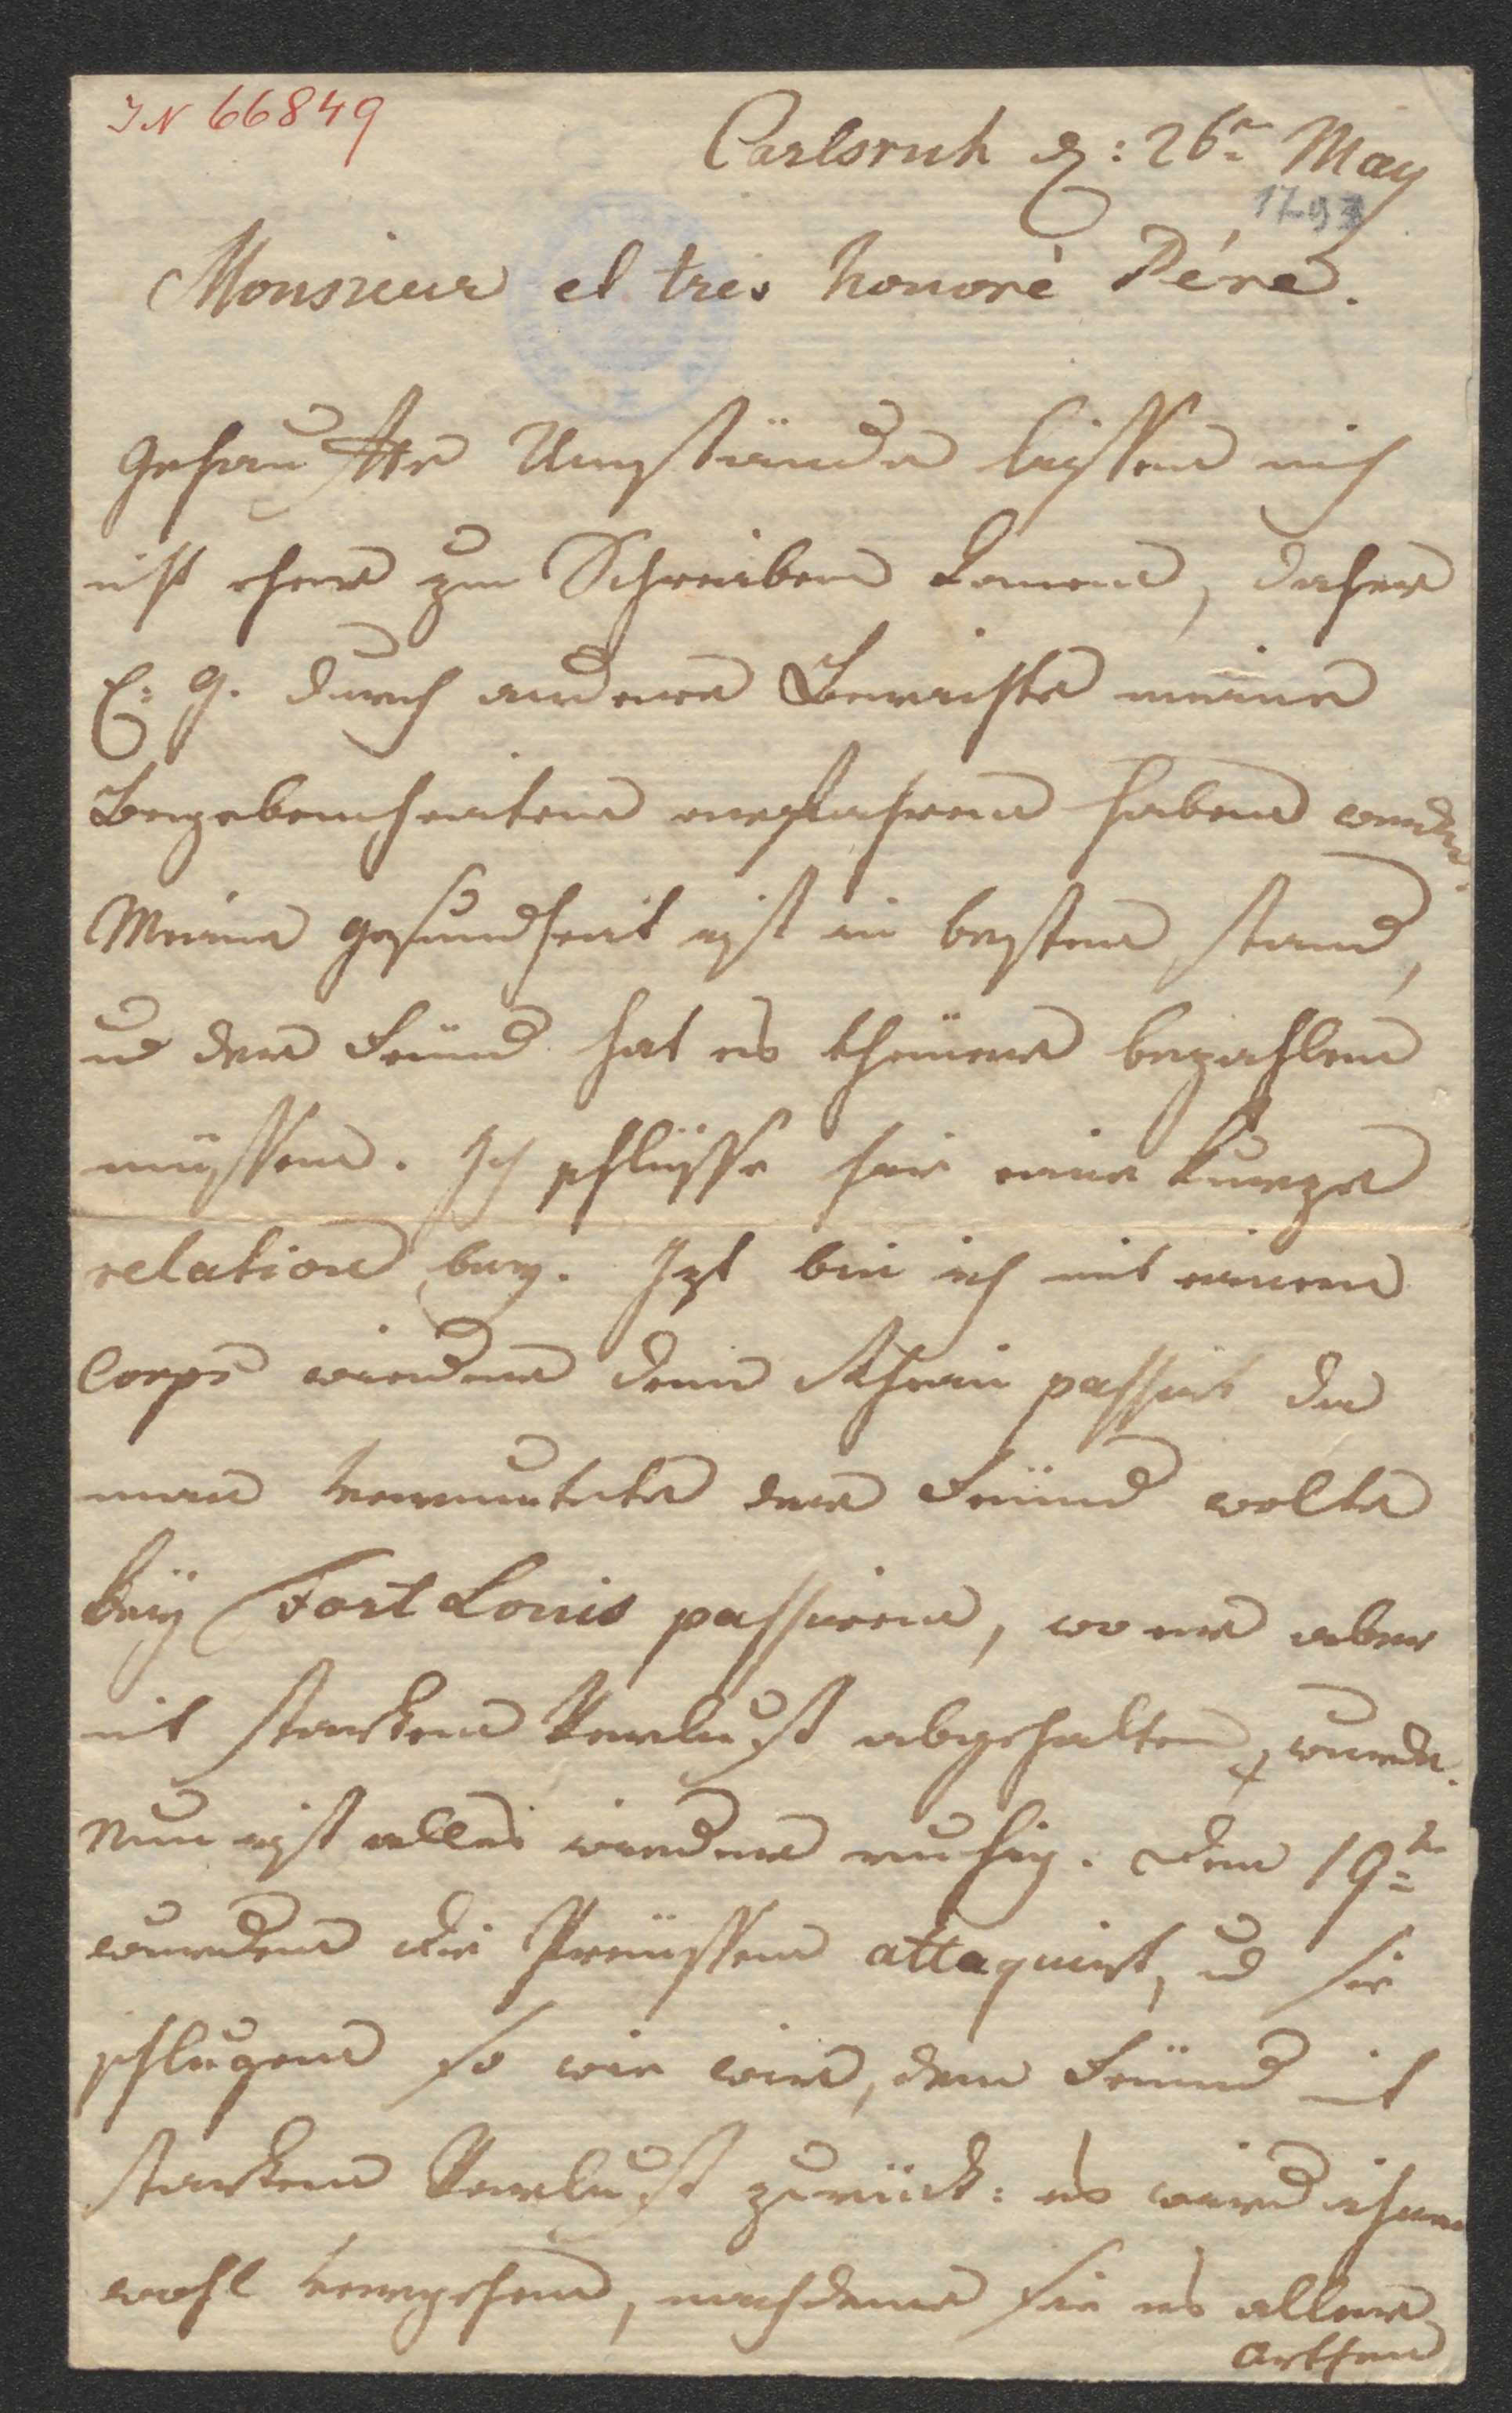 IN 66849
Carlsruh d: 26n May
1793
Monsieur et tres honoré Pére.
gehaufte Umstände liessen mich
nicht eher zum Schreiben komen, daher
E: G. durch andere Berichte meine
Begebenheiten erfahren haben werden.
Meine gesundheit ist in besten stand,
und der Feind hat es theuer bezahlen
müssen. Ich schlüsse hir eine kurze
relation bey. Izt bin ich mit einem
Corps wieder den Rhein passirt da
man vermutete der Feind wolte
beÿ Fort Louis passiren, wo er aber
mit starken Verlust abgehalten wurde.
Nun ist alles wieder ruhig. den 19ten
wurden die Preussen attaquirt, und sie
schlugen so wie wir, den Feind mit
starken Verlust zurück: es wird ihnen
wohl vergehen, nachdem sie es aller
Orthen